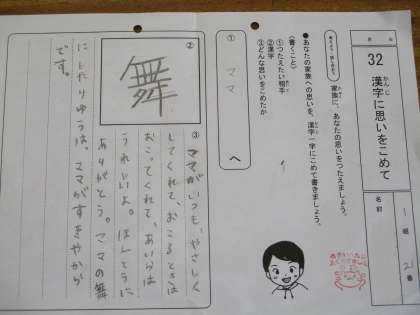 32 漢字に思いをこめて
かんじ
名前
1組
21番
家族に、あなたの思いをつたえましょう。
●あなたの家族への思いを、漢字一字にこめて書きましょう。
〈書くこと〉
①つたえたい相手
②漢字
③どんな思いをこめたか
①
ママ
へ
②
舞
③ママがいつも、やさしく
してくれて、おこるときは
おこってくれて、あいらは
うれしいよ。ほんとうに
ありがとう。ママの舞
にしたりゆうは、ママがすきやから
です。